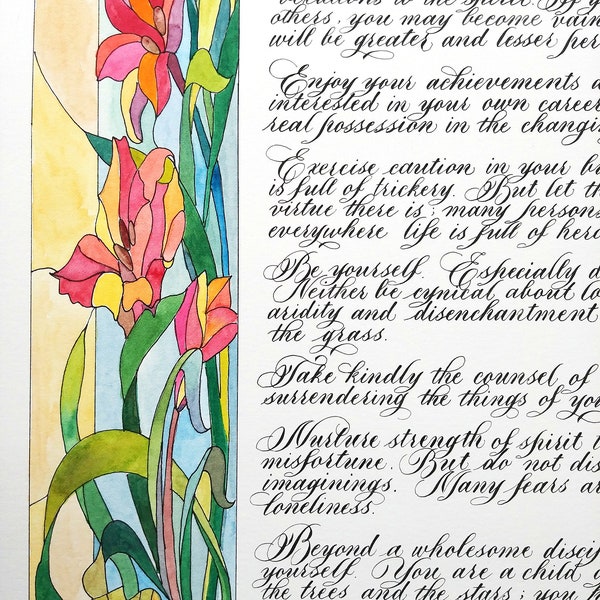 others, you may become vain
will be greater and lesser per
Enjoy your achievements a
interested in your own career
real possession in the changin
Exercise caution in your bu
is full of trickery. But let th
virtue there is; many persons
everywhere life is full of hero
Be yourself. Especially d
Neither be cynical about lo
aridity and disenchantment
the grass.
Take kindly the counsel of
surrendering the things of you
Nurture strength of spirit t
misfortune. But do not dis
imaginings. Many fears ar
loneliness.
Beyond a wholesome discip
yourself. You are a child o
the trees and the stars; you h